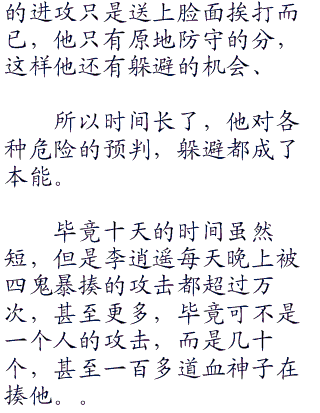 的进攻只是送上脸面挨打而
已，他只有原地防守的分，
这样他还有躲避的机会、
所以时间长了，他对各
种危险的预判，躲避都成了
本能。
毕竟十天的时间虽然
短，但是李逍遥每天晚上被
四鬼暴揍的攻击都超过万
次，甚至更多，毕竟可不是
一个人的攻击，而是几十
个，甚至一百多道血神子在
揍他。。